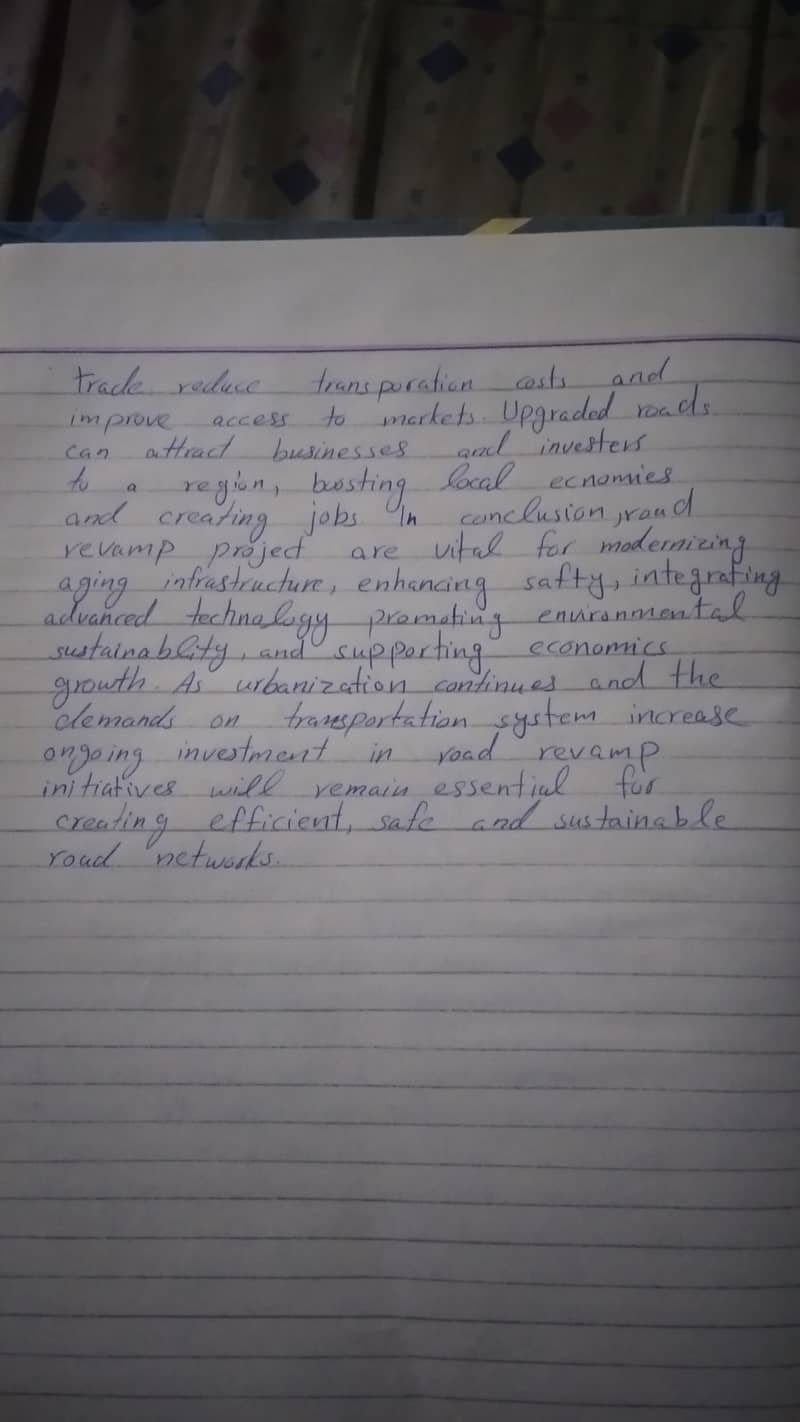 trade. reduce transporation costs and
improve access to markets. Upgraded roads
can attract businesses and investers
to a region, boosting local ecnomies
and creating jobs. In conclusion, road
revamp project are vital for modernizing
aging infrastructure, enhancing safty, integrating
advanced technology promoting environmental
sustainablity, and supporting economics
growth. As urbanization continues and the
demands on transportation system increase
ongoing investment in road revamp
initiatives will remain essential for
creating efficient, safe and sustainable
road networks.